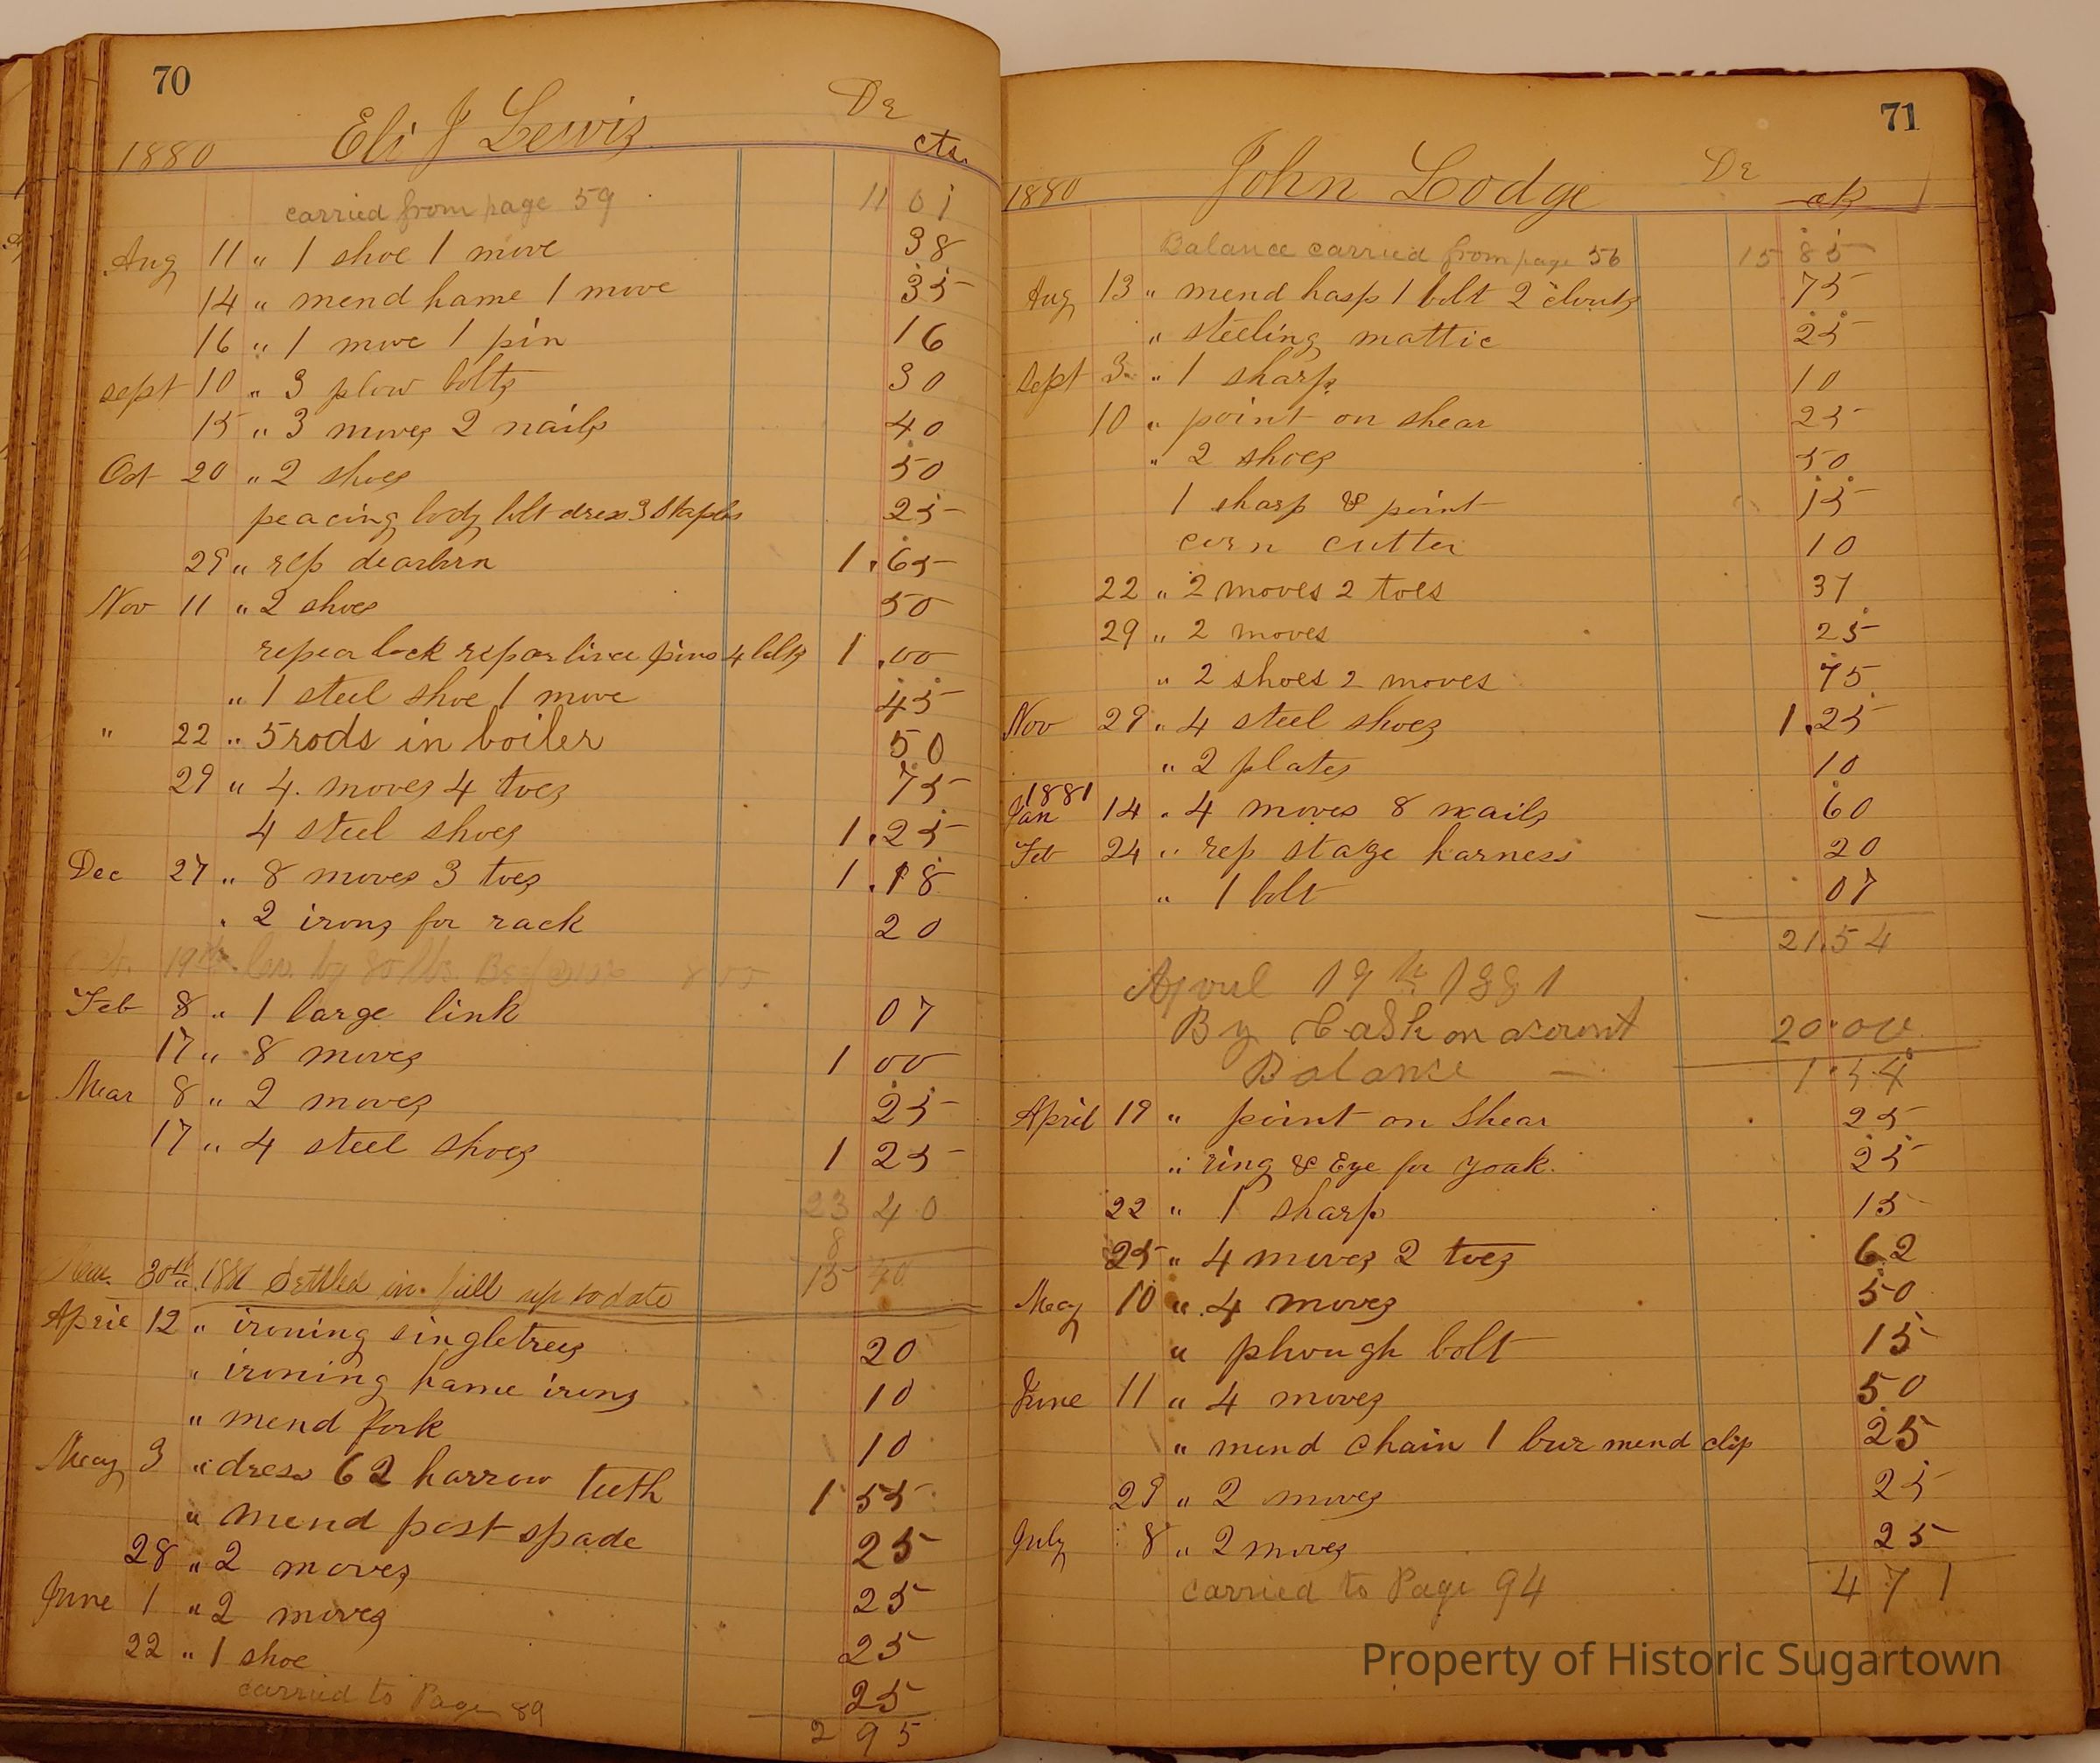 70
Dr
1880 Eli J Lewis cts.
carried from page 59 11 01
Aug 11 " 1 shoe 1 move 38
14 " mend hame 1 move 35
16 " 1 move 1 pin 16
sept 10 " 3 plow bolts 30
15 " 3 moves 2 nails 40
Oct 20 " 2 shoes 50
peacing body bolt dress 3 staples 25
29 " rep dearbrn 1.65
Nov 11 " 2 shoes 50
lock pins 4 bolts 1.00
" 1 steel shoe 1 move 45
" 22 " 5 rods in boiler 50
29 " 4 moves 4 toes 75
4 steel shoes 1.25
Dec 27 " 8 moves 3 toes 1.18
" 2 irons for rack 20
19th by 80 lbs.
Feb 8 " 1 large link 07
17 " 8 moves 1 00
Mar 8 " 2 moves 25
17 " 4 steel shoes 1 25
23 40
8
15 40
30th 1881 Settled in full up to date
Aprie 12 " ironing singletrees 20
" ironing hame irons 10
" mend fork 10
May 3 " dress 62 harrow teeth 1 55
" mend post spade 25
28 " 2 moves 25
June 1 " 2 moves 25
22 " 1 shoe 25
carried to Page 89
2 95
71
1880 John Lodge Dr
Balance carried from page 56 15 85
Aug 13 " mend hasp 1 bolt 2 clouts 75
" steeling mattic 25
Sept 3 " 1 sharp 10
10 " point on shear 25
" 2 shoes 50
1 sharp & point 15
corn cutter 10
22 " 2 moves 2 toes 37
29 " 2 moves 25
" 2 shoes 2 moves 75
Nov 29 " 4 steel shoes 1.25
" 2 plates 10
1881
Jan 14 " 4 moves 8 nails 60
Feb 24 " rep stage harness 20
" 1 bolt 07
21.54
April 19th 1881
By Cash on account 20.00
Balance 1.54
April 19 " point on Shear 25
" ring & Eye for yoak. 25
22 " 1 sharp 15
25 " 4 moves 2 toes 62
May 10 " 4 moves 50
" plough bolt 15
June 11 " 4 moves 50
" mend chain 1 bur mend clip 25
29 " 2 moves 25
July 8 " 2 moves 25
carried to Page 94 4 71
Property of Historic Sugartown